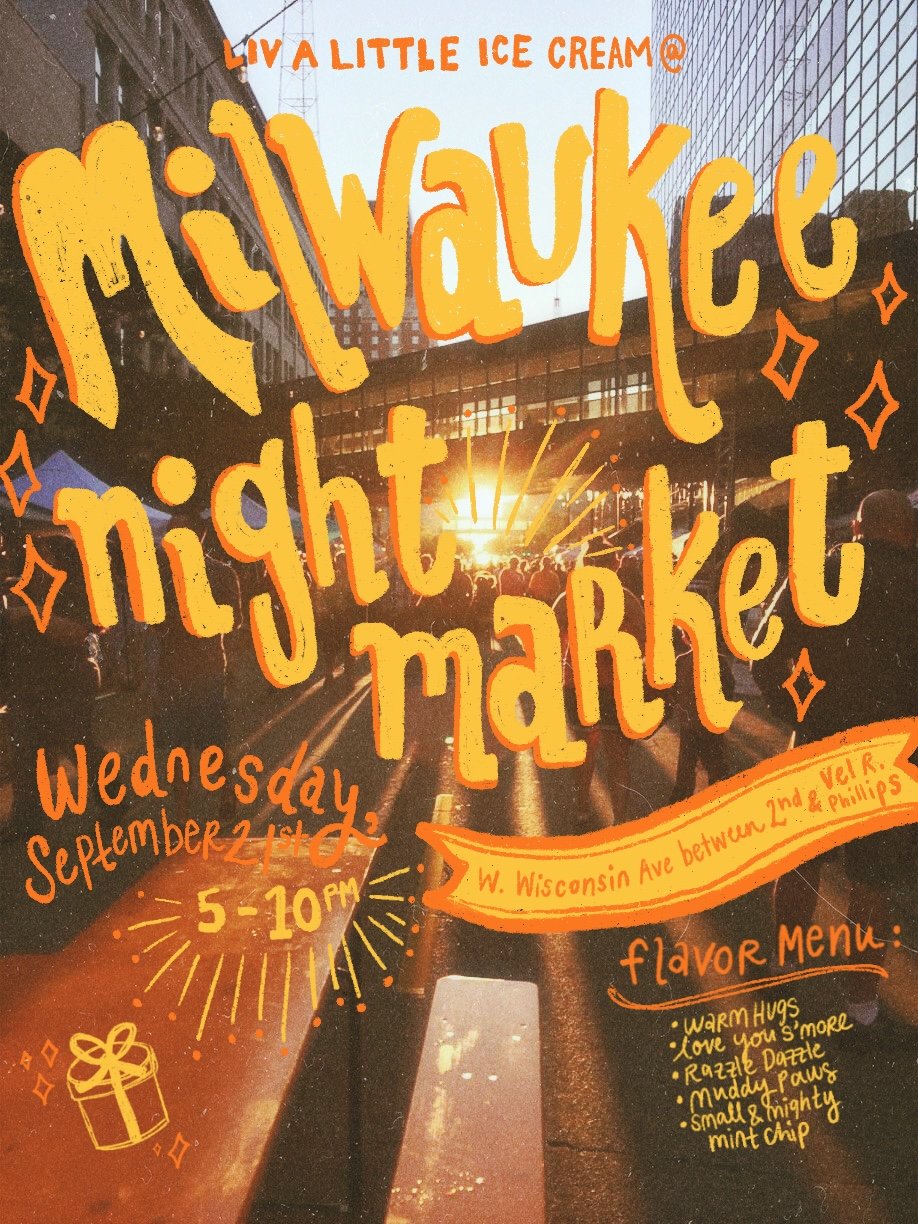 LIV A LITTLE ICE CREAM @
Milwaukee
night
market
Wednesday,
September 21st
5-10PM
W. Wisconsin Ave between 2nd & Vel R. Phillips
flavor Menu:
• Warm Hugs
• love you s'more
• Razzle Dazzle
• Muddy Paws
• small & mighty
mint chip